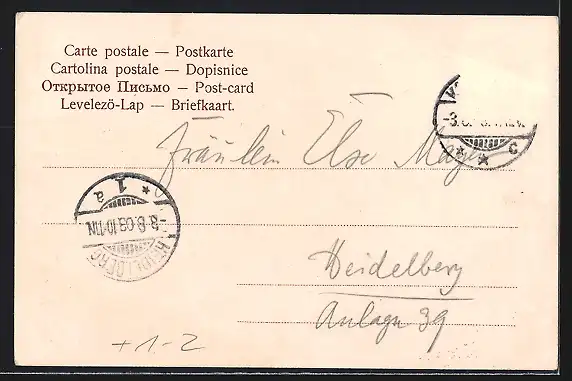 Carte postale — Postkarte
Cartolina postale — Dopisnice
Открытое Письмо — Post-card
Levelező-Lap — Briefkaart.
Fräulein Else Mayer
Heidelberg
Anlage 39
+1-2
HEIDELBERG
1
a
-3.8.03.10-11N.
C